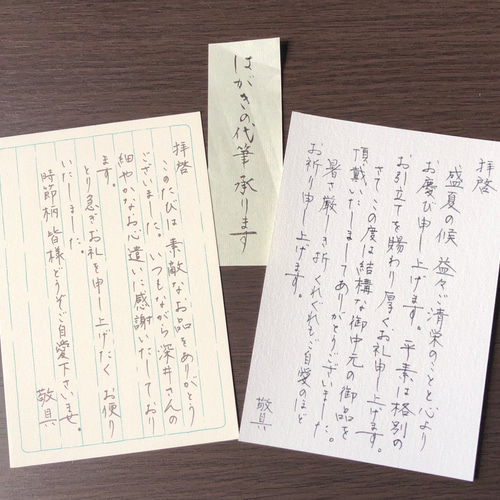 はがきの代筆承ります
拝啓
盛夏の候 益々ご清栄のことと心より
お慶び申し上げます。平素は格別の
お引立てを賜わり厚くお礼申し上げます。
さてこの度は結構な御中元の御品を
頂戴いたしましてありがとうございました。
暑さ厳しき折くれぐれもご自愛のほど
お祈り申し上げます。
敬具
拝啓
このたびは素敵なお品をありがとう
ございました。いつもながら深井さんの
細やかなお心遣いに感謝いたしており
ます。
とり急ぎお礼を申し上げたくお便り
いたしました。
時節柄 皆様どうぞご自愛下さいませ。
敬具